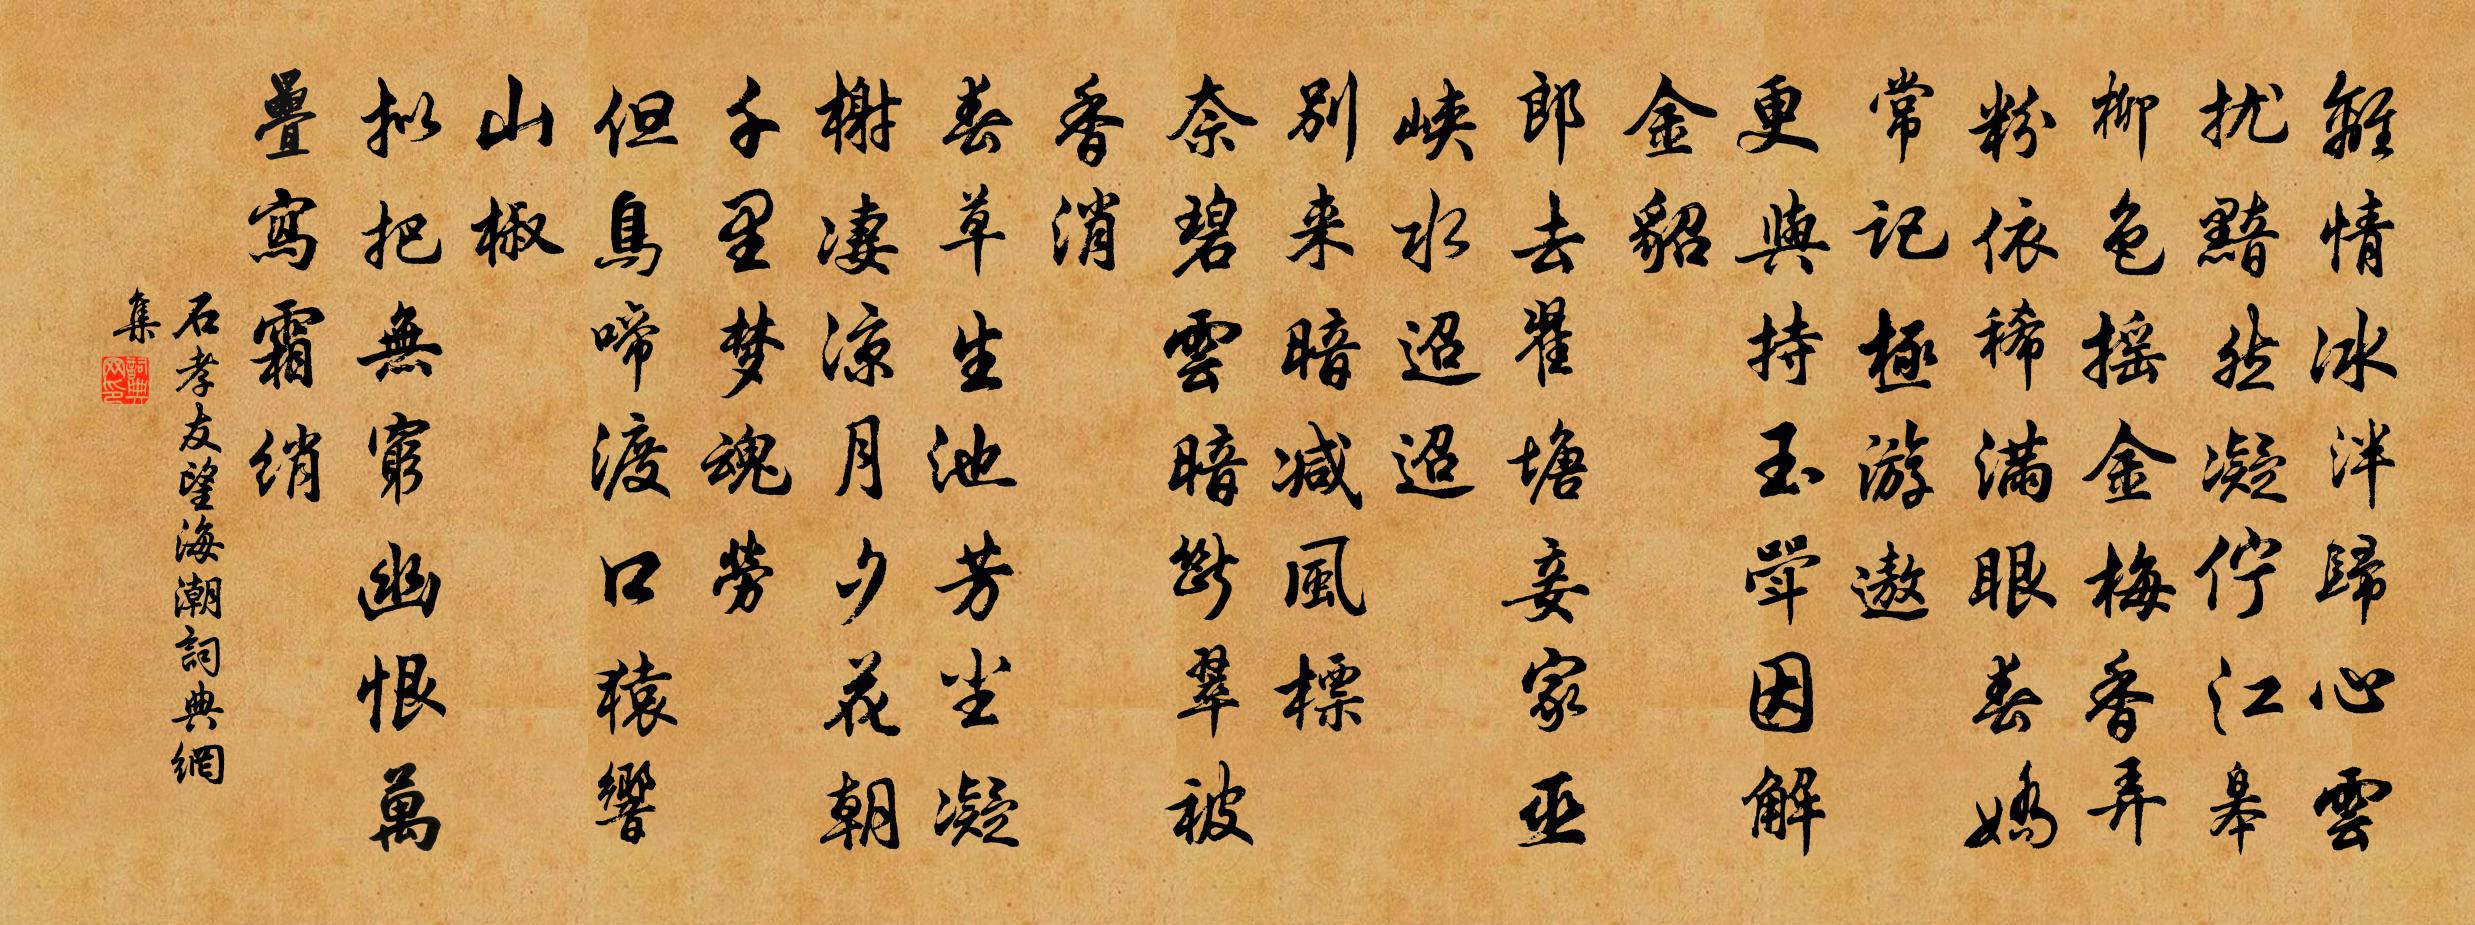 離情冰泮歸心雲
扰黯然凝佇江皋
柳色摇金梅香弄
粉依稀滿眼春嬌
常记極游遨
更與持玉斝因解
金貂
郎去瞿塘妾家巫
峡水迢迢
别来暗减風標
奈碧雲暗斷翠被
香消
春草生池芳尘凝
榭凄凉月夕花朝
千里梦魂勞
但鳥啼渡口猿響
山椒
拟把無窮幽恨萬
疊寫霜綃
石孝友望海潮詞典網
集
詞典網印